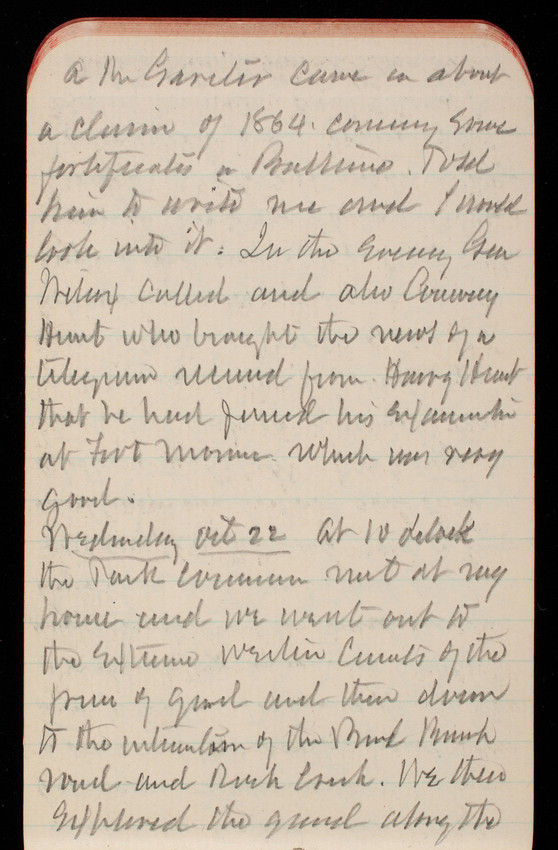 a Mr Gavitir came in about
a claim of 1864. concerning some
fortificatis in Baltimo. Told
him to write me and I would
look into it. In the Evening Gen
Wilcox called and also Conway
Hunt who brought the news of a
telegram received from Harry Hunt
that he had passed his Examinatin
at Fort Monroe. Which was very
good.
Wednesday Oct 22 At 10 oclock
the Park Commission met at my
house and we went out to
the Extreme Western limits of the
of and then down
to the intersection of the Broad Branch
road and Rock Creek. We then
Explored the ground along the